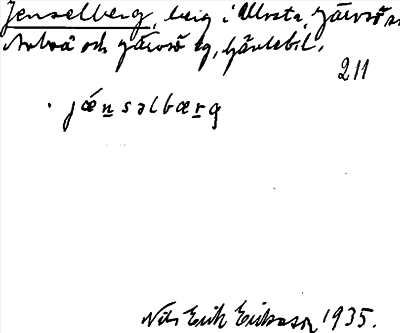 Jenselberg, berg i Ulvsta, Järvsö sn
Arbrå och Järvsö tg, Gävlebl.
211
· jǽn̲səlbær̲g
Nils Erik Eriksson 1935.